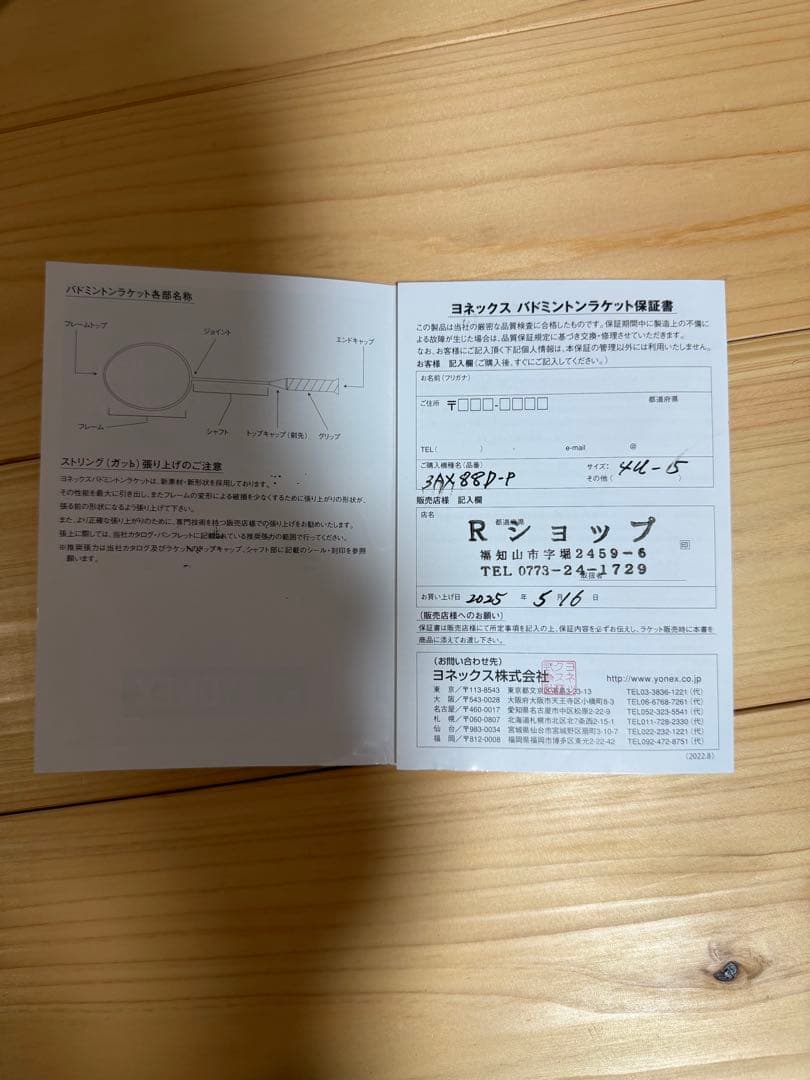 バドミントンラケット各部名称
フレームトップ
ジョイント
エンドキャップ
フレーム
シャフト
トップキャップ(剣先)
グリップ
ストリング(ガッb)張り上げのご注意
ヨネックスバドミントンラケットは、新素材・新形状を採用しております。
その性能を最大に引き出し、またフレームの変形による破損を少なくするために張り上がりの形状が、
張る前の形状になるよう張り上げて下さい。
また、より正確な張り上がりのために、専門技術を持つ販売店様での張り上げをお勧めいたします。
張上に際しては、当社カタログ・パンフレットに記載されている推奨張力の範囲で行ってください。
※推奨張力は当社カタログ及びラケットトップキャップ、シャフト部に記載のシール・刻印を参照
願います。
ヨネックス バドミントンラケット保証書
この製品は当社の厳密な品質検査に合格したものです。保証期間中に製造上の不備に
よる故障が生じた場合は、品質保証規定に基づき交換・修理させていただきます。
なお、お客様にご記入頂く下記個人情報は、本保証の管理以外には利用いたしません。
お客様 記入欄(ご購入後、すぐにご記入してください。)
お名前(フリガナ)
ご住所 〒□□□-□□□□ 都道府県
TEL( ) - e-mail @
ご購入機種名(品番) サイズ: 4U-5
3AX88D-P その他( )
販売店様 記入欄
店名 都道府県
Rショップ
印
福知山市字堀2459-6
TEL 0773-24-1729
取扱者
お買い上げ日 2025 年 5 月 16 日
(販売店様へのお願い)
保証書は販売店様にて所定事項を記入の上、保証内容を必ずお伝えし、ラケット販売時に本書を
商品に添えてお渡し下さい。
(お問い合わせ先)
ヨネックス株式会社 http://www.yonex.co.jp
東 京/〒113-8543 東京都文京区湯島3-23-13 TEL03-3836-1221(代)
大 阪/〒543-0028 大阪府大阪市天王寺区小橋町8-3 TEL06-6768-7261(代)
名古屋/〒460-0017 愛知県名古屋市中区松原2-22-9 TEL052-323-5541(代)
札 幌/〒060-0807 北海道札幌市北区北7条西2-15-1 TEL011-728-2330(代)
仙 台/〒983-0034 宮城県仙台市宮城野区扇町3-10-7 TEL022-232-1221(代)
福 岡/〒812-0008 福岡県福岡市博多区東光2-22-42 TEL092-472-8751(代)
(2022.8)